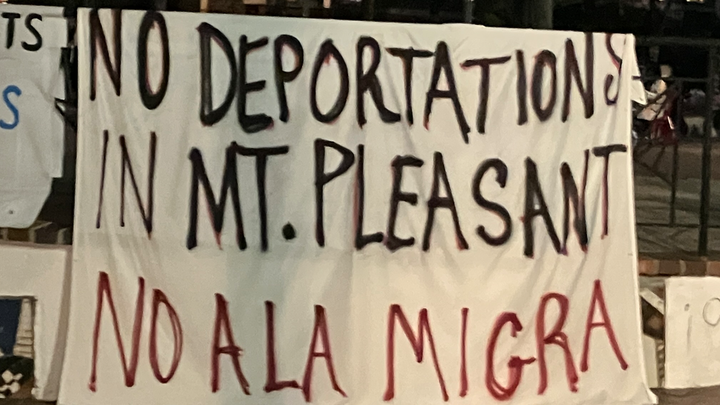 TS
S
NO DEPORTATIONS
IN MT. PLEASANT
NO A LA MIGRA